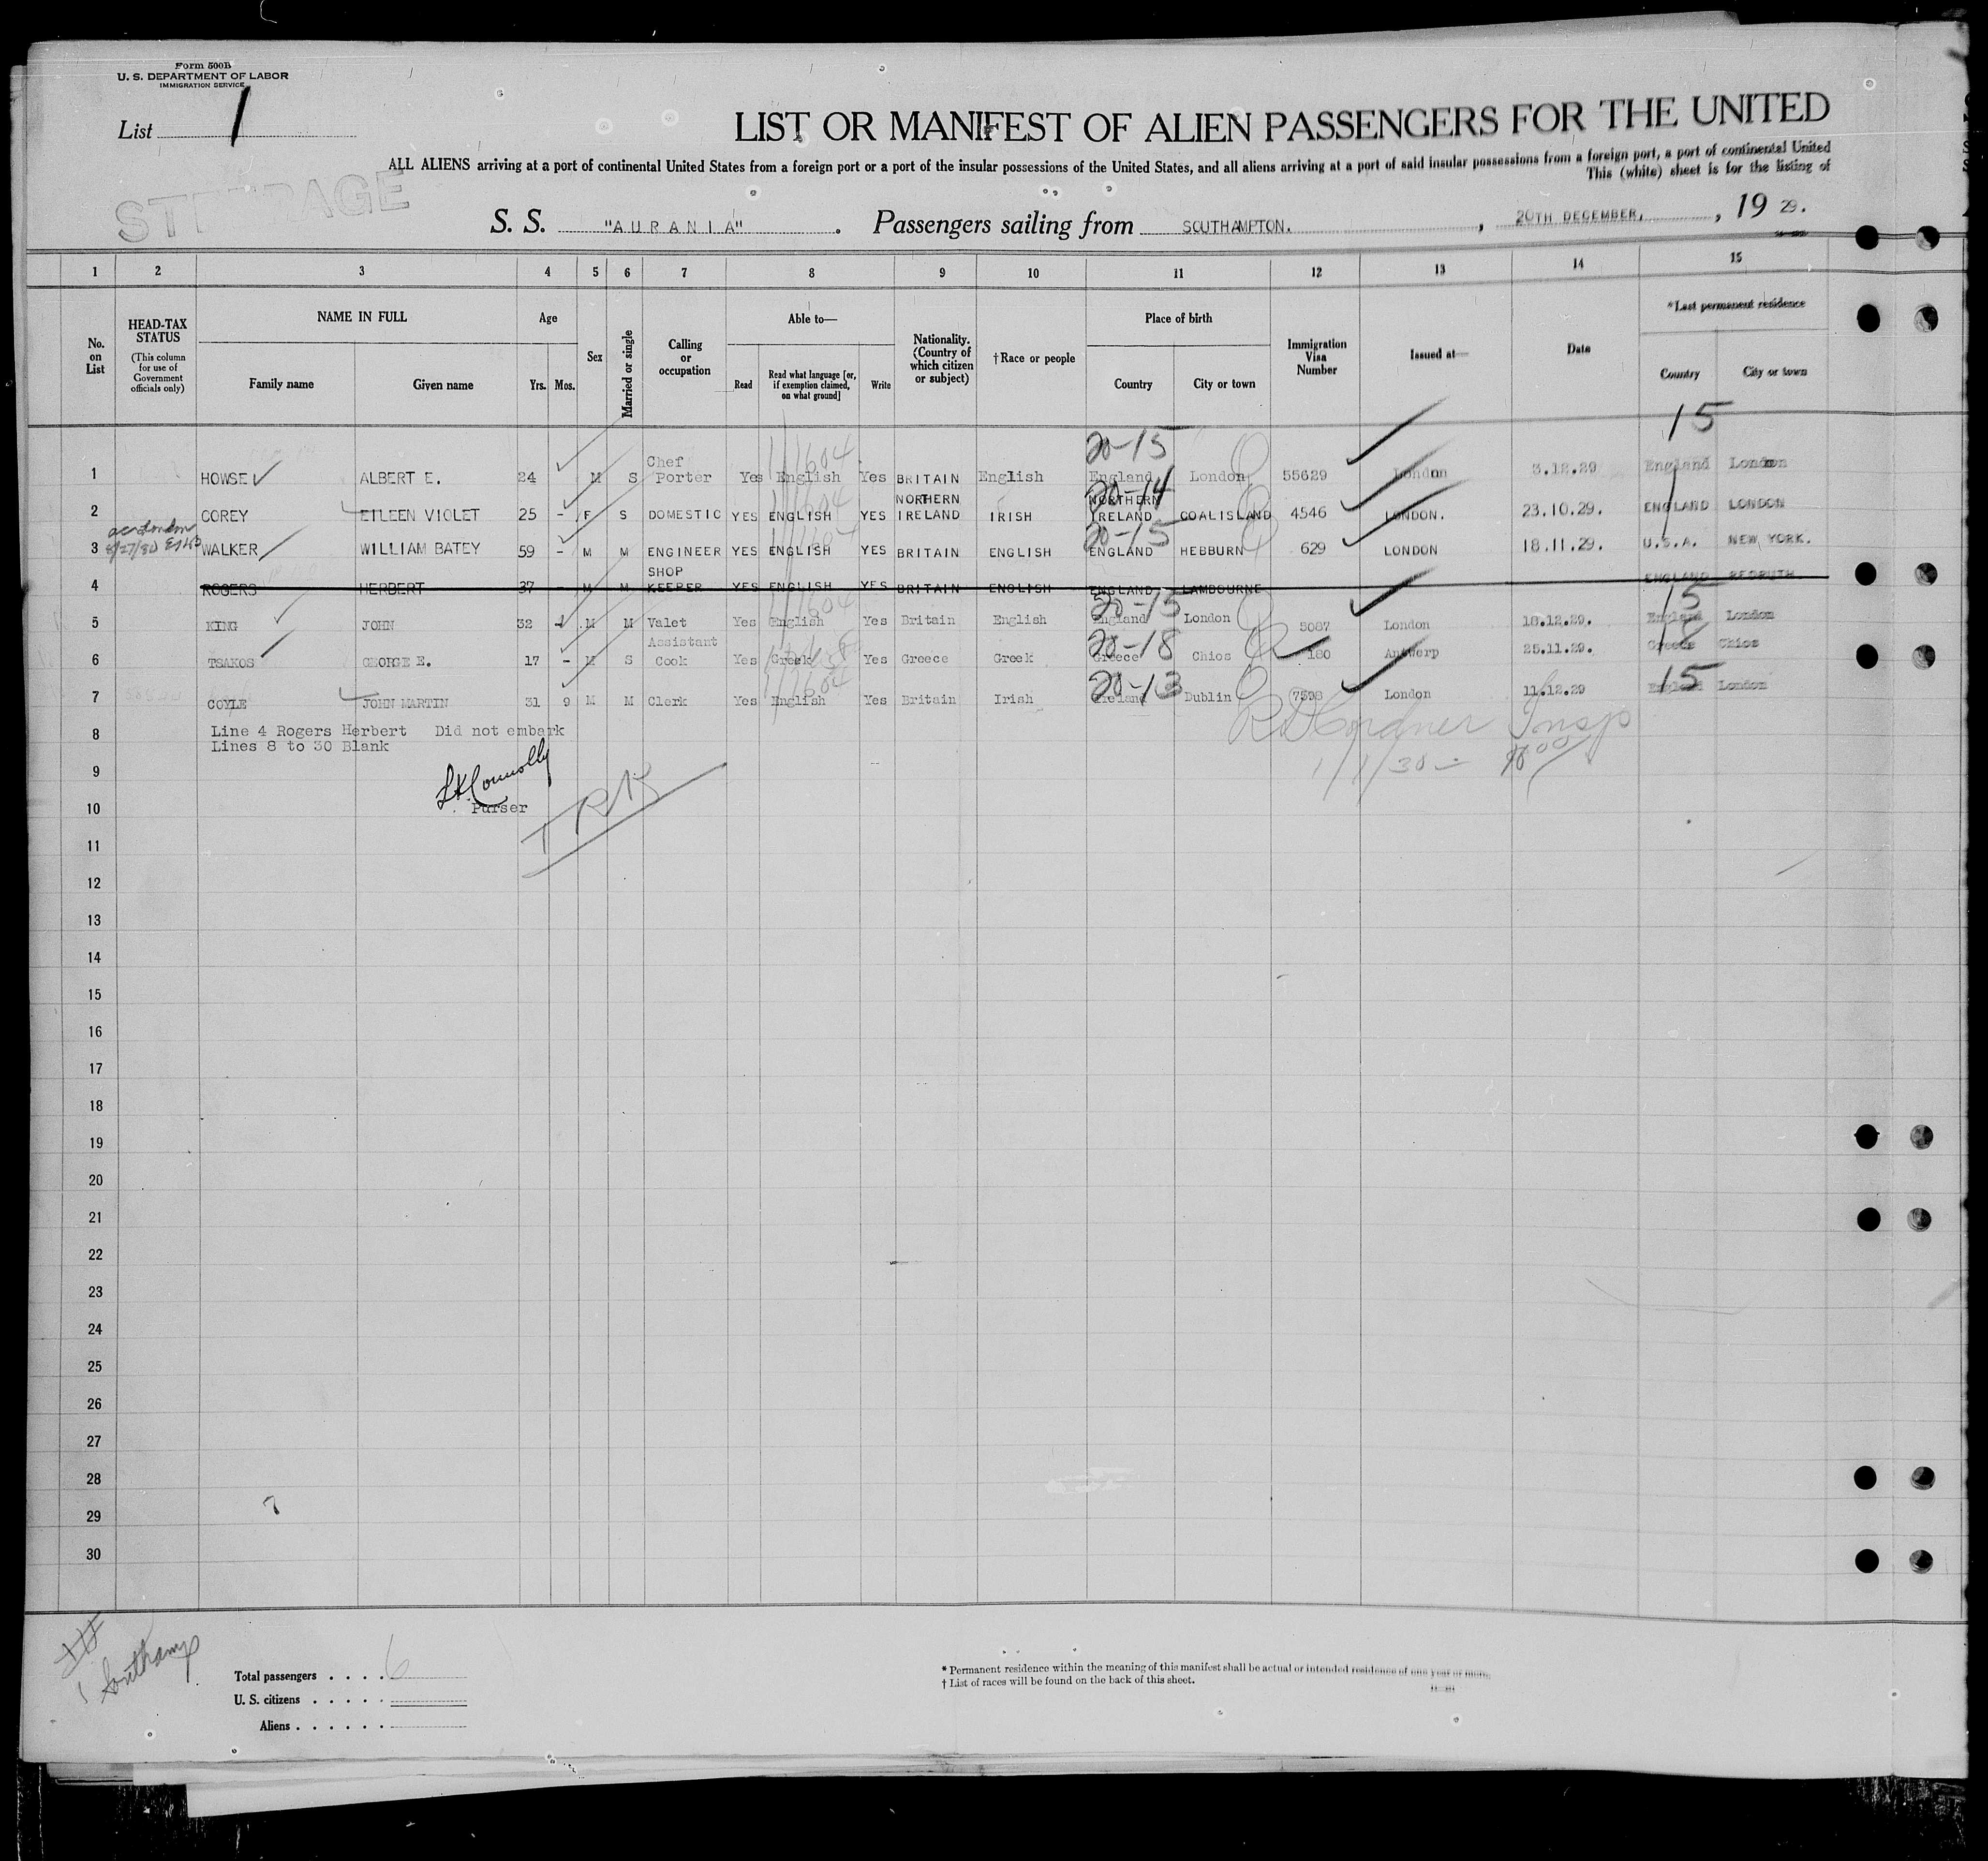 Form 500B
U. S. DEPARTMENT OF LABOR
IMMIGRATION SERVICE
List 1
LIST OR MANIFEST OF ALIEN PASSENGERS FOR THE UNITED
ALL ALIENS arriving at a port of continental United States from a foreign port or a port of the insular possessions of the United States, and all aliens arriving at a port of said insular possessions from a foreign port, a port of continental United
This (white) sheet is for the listing of
S. S. "AURANIA". Passengers sailing from SOUTHAMPTON., 20TH DECEMBER, , 19 29.
1 2 3 4 5 6 7 8 9 10 11 12 13 14 15
No. on List
HEAD-TAX STATUS
(This column for use of Government officials only)
NAME IN FULL
Family name
Given name
Age
Yrs. Mos.
Sex
Married or single
Calling or occupation
Able to—
Read
Read what language [or, if exemption claimed, on what ground]
Write
Nationality. (Country of which citizen or subject)
†Race or people
Place of birth
Country
City or town
Immigration Visa Number
Issued at—
Date
*Last permanent residence
Country
City or town
15
20-15
1 HOWSE ALBERT E. 24 M S Chef Porter Yes English Yes BRITAIN English England London 55629 London 3.12.29 England London
20-14
2 COREY EILEEN VIOLET 25 - F S DOMESTIC YES ENGLISH YES NORTHERN IRELAND IRISH NORTHERN IRELAND COALISLAND 4546 LONDON. 23.10.29. ENGLAND LONDON
20-15
3 WALKER WILLIAM BATEY 59 - M M ENGINEER YES ENGLISH YES BRITAIN ENGLISH ENGLAND HEBBURN 629 LONDON 18.11.29. U.S.A. NEW YORK.
4 ROGERS HERBERT 37 - M M SHOP KEEPER YES ENGLISH YES BRITAIN ENGLISH ENGLAND LAMBOURNE ENGLAND REDRUTH.
20-15 15
5 KING JOHN 32 - M M Valet Yes English Yes Britain English England London 5087 London 18.12.29. England London
20-18
6 TSAKOS GEORGE E. 17 - M S Assistant Cook Yes Greek Yes Greece Greek Greece Chios 180 Antwerp 25.11.29. Greece Chios
20-13 15
7 COYLE JOHN MARTIN 31 9 M M Clerk Yes English Yes Britain Irish Ireland Dublin 7598 London 11.12.29 England London
8 Line 4 Rogers Herbert Did not embark
Lines 8 to 30 Blank
Insp
1/1/30
9
Connolly
10 Purser
11
12
13
14
15
16
17
18
19
20
21
22
23
24
25
26
27
28
29
30
Southamp
Total passengers . . . . 6
U. S. citizens . . . . .
Aliens . . . . . .
* Permanent residence within the meaning of this manifest shall be actual or intended residence of one year or more.
† List of races will be found on the back of this sheet.